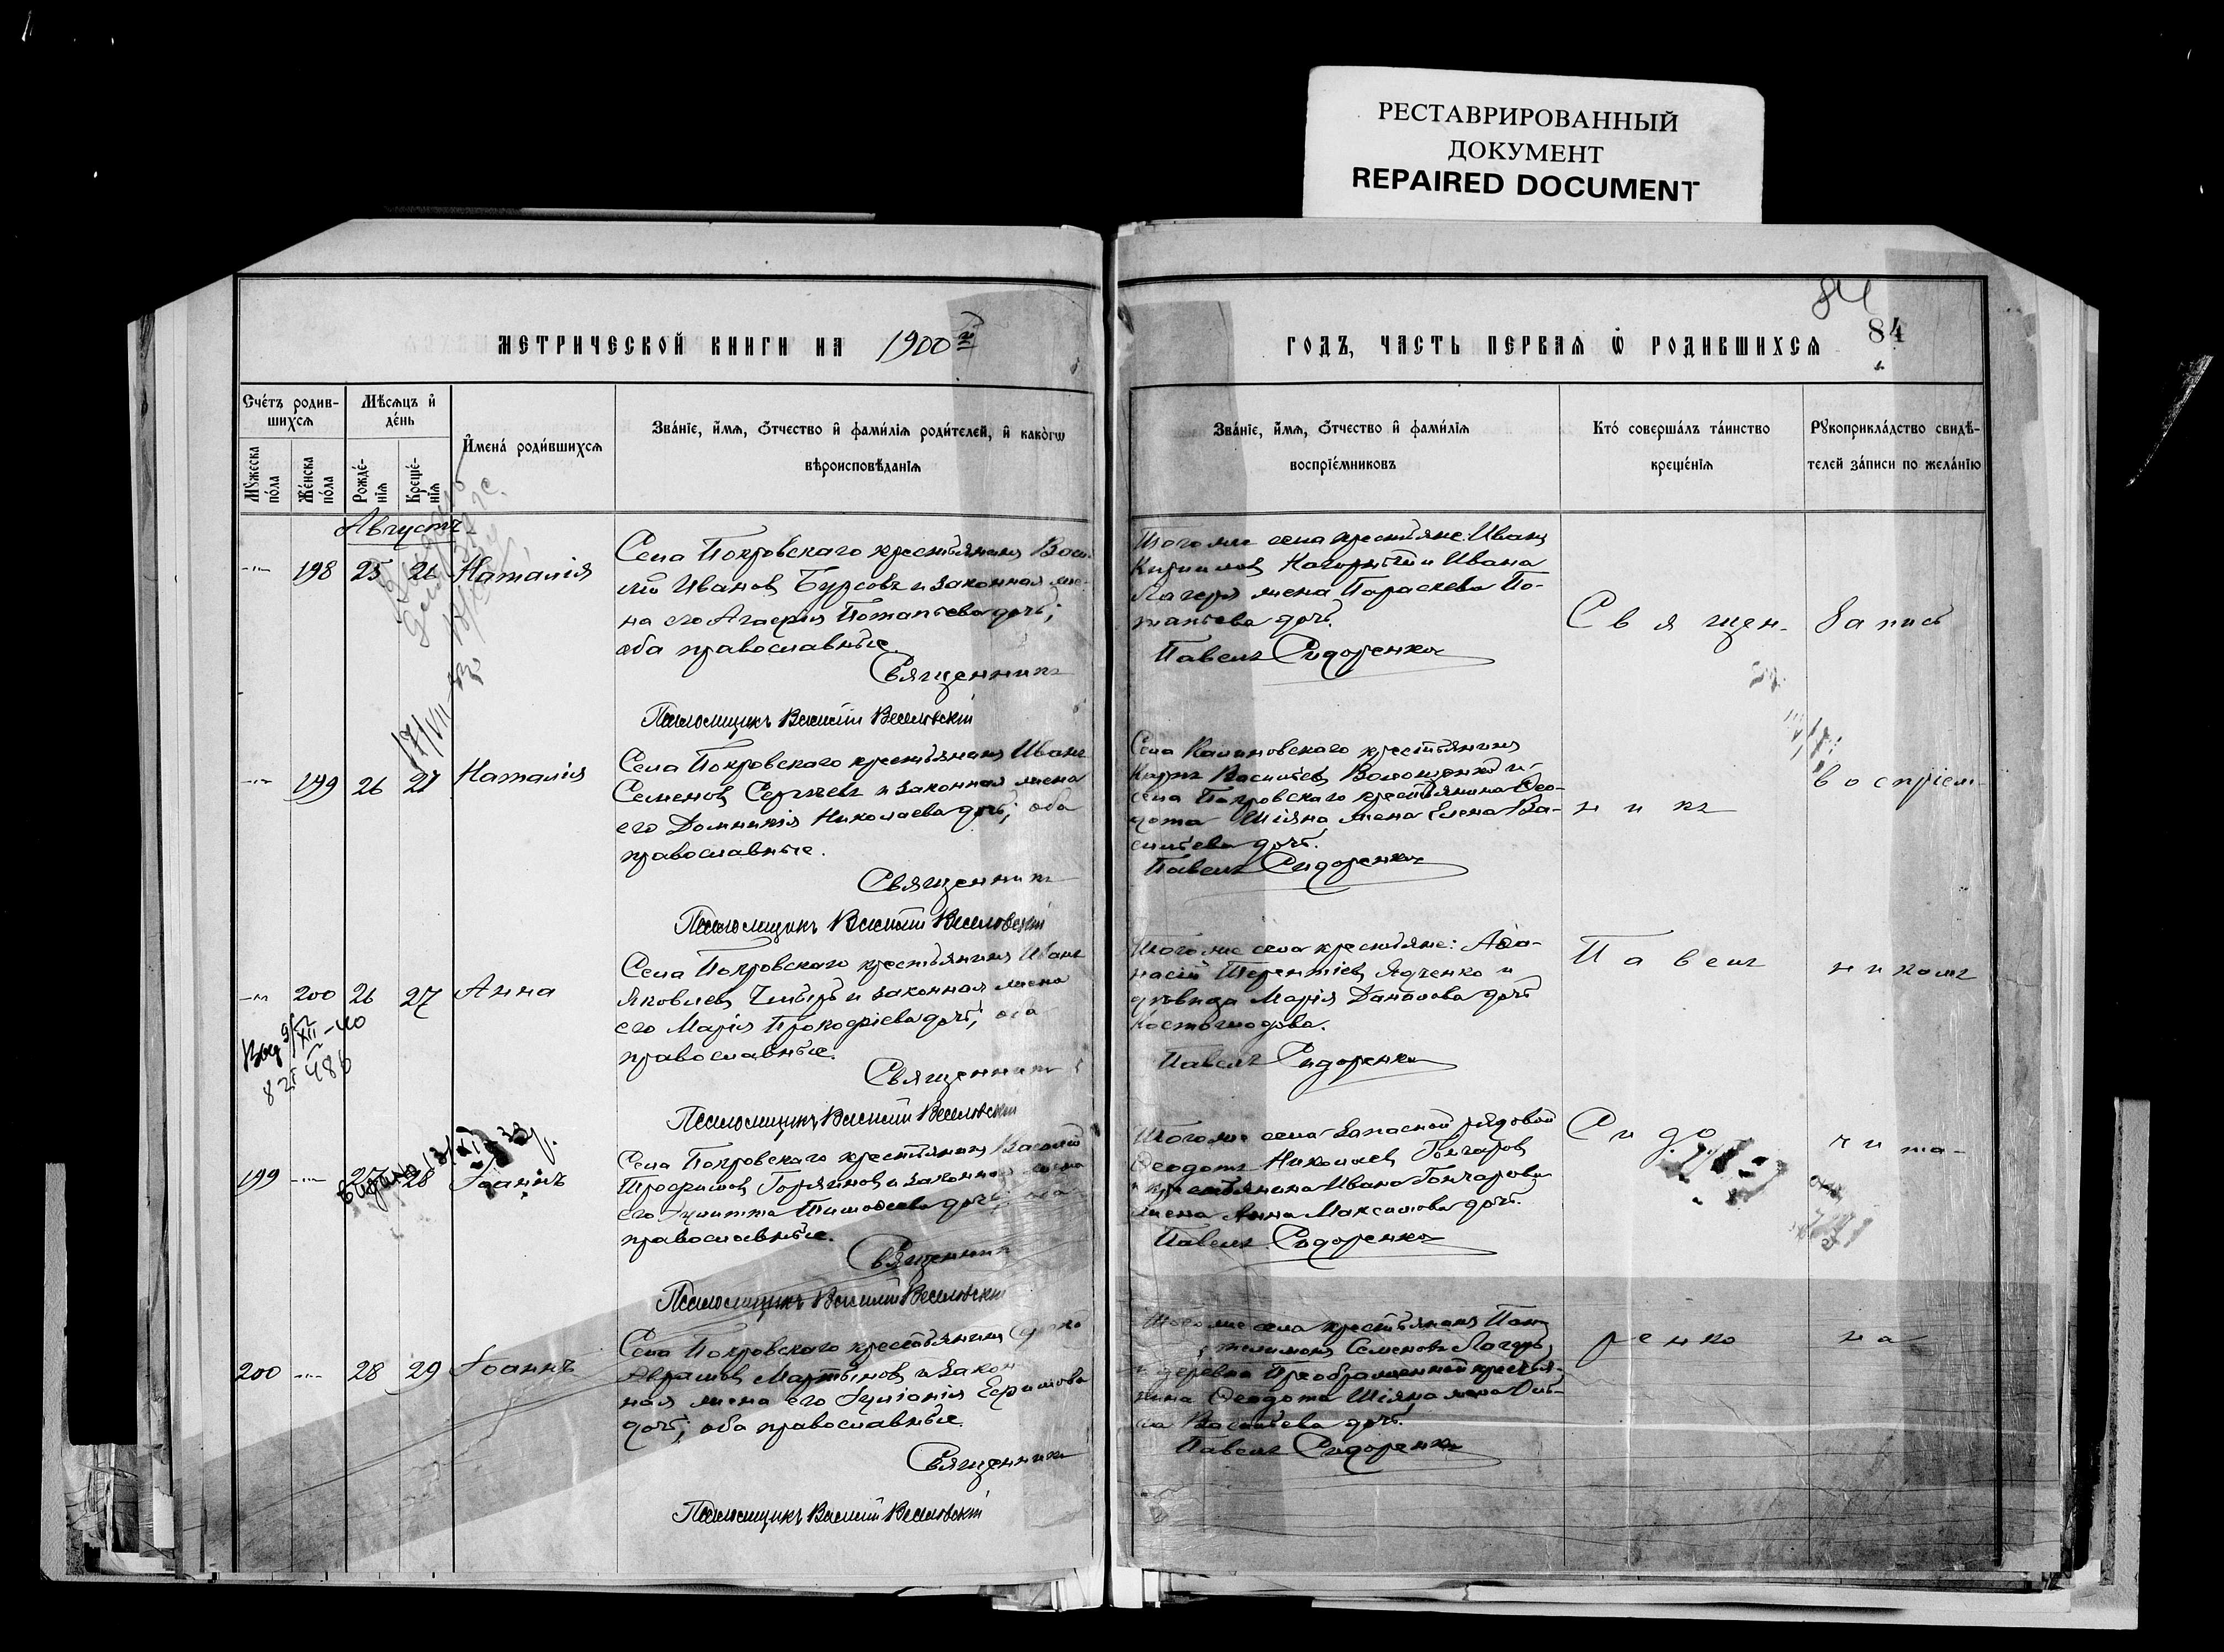 РЕСТАВРИРОВАННЫЙ
ДОКУМЕНТ
REPAIRED DOCUMENT
84
МЕТРИЧЕСКОЙ КНИГИ НА 1900й
ГОДЪ, ЧАСТЬ ПЕРВАЯ Ѡ РОДИВШИХСЯ
84
Сче́тъ родив-
шихсѧ
Мꙋ́жеска по́ла
Же́нска по́ла
Мѣ́сѧцъ и҆
де́нь
Рожде́-
нїѧ
Креще́-
нїѧ
И҆мена̀ роди́вшихсѧ
Зва́нїе, и҆́мѧ, ѻ҆́тчество и҆ фами́лїѧ роди́телей, и҆ како́гѡ
вѣроисповѣ́данїѧ
Зва́нїе, и҆́мѧ, ѻ҆́тчество и҆ фами́лїѧ
воспрїе́мниковъ
Кто́ соверша́лъ та́инство
креще́нїѧ
Рꙋкоприкла́дство свидѣ́-
телей за́писи по жела́нїю
Августъ
198 25 26 Наталія
Села Покровскаго крестьянинъ Васи-
лій Иванов Бурсовъ и законная же-
на его Агафія Потапьева дочь;
оба православные
Священникъ
Псаломщикъ Василій Веселовскій
Того же села крестьяне: Иванъ
Кириллов Нагорный и Ивана
Лагеря жена Параскева По-
тапьева дочь.
Павелъ Сидоренко
Священ-
Запись
199 26 27 Наталія
Села Покровскаго крестьянинъ Иванъ
Семенов Сергѣевъ и законная жена
его Домникія Николаева дочь; оба
православные.
Священникъ
Псаломщикъ Василій Веселовскій
Села Калиновскаго крестьянинъ
Карпъ Васильев Волощенко и
села Покровскаго крестьянина Ѳео-
дота Шіяна жена Елена Ва-
сильева дочь.
Павелъ Сидоренко
никъ
воспріем-
200 26 27 Анна
Села Покровскаго крестьянинъ Иванъ
Яковлев и законная жена
его Марія Прокофіева дочь; оба
православные.
Священникъ
Псаломщикъ Василій Веселовскій
Того же села крестьяне: Аѳа-
насій Терентіев Ядченко и
дѣвица Марія Данилова дочь
Павелъ Сидоренко
Павелъ
никамъ
199 27 28 Іоаннъ
Села Покровскаго крестьянинъ Василій
Трофимов Горяинов и законная жена
его Тимоѳеева дочь; оба
православные.
Священникъ
Псаломщикъ Василій Веселовскій
Того же села запасной рядовой
Ѳеодотъ Николаев Гончаров
и крестьянина Ивана Гончарова
жена Анна Максимова дочь.
Павелъ Сидоренко
Сидо
чита-
200 28 29 Іоаннъ
Села Покровскаго крестьянинъ
Абрамов Мартынов и закон
ная жена его Іуліанія Ефимова
дочь; оба православные.
Священникъ
Псаломщикъ Василій Веселовскій
Того же села крестьянинъ Пан-
телимонъ Семенов Лагерь
и деревни Преображенной крестья-
нина Ѳеодота Шіяна жена
Васильева дочь.
Павелъ Сидоренко
ренко
на